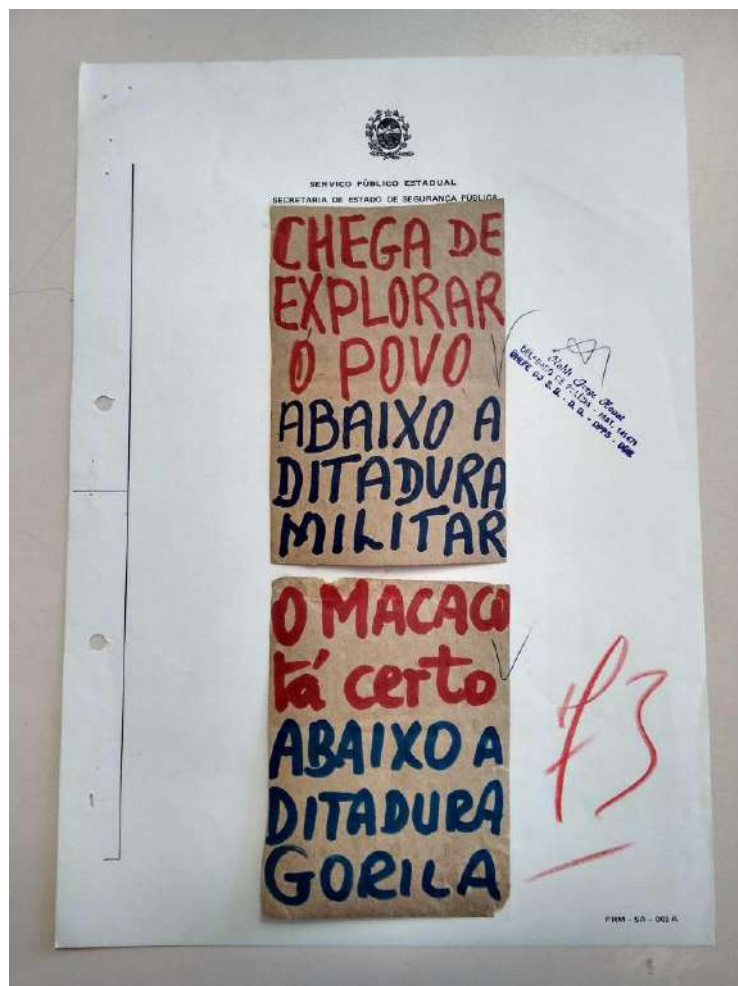 SERVIÇO PÚBLICO ESTADUAL
SECRETARIA DE ESTADO DE SEGURANÇA PÚBLICA
CHEGA DE
EXPLORAR
O POVO
ABAIXO A
DITADURA
MILITAR
DELEGADO DE POLÍCIA - MAT.
CHEFE DO S. B. - D. O. - DPPS - DGIE
O MACACO
tá certo
ABAIXO A
DITADURA
GORILA
73
FRM - SA - 001 A